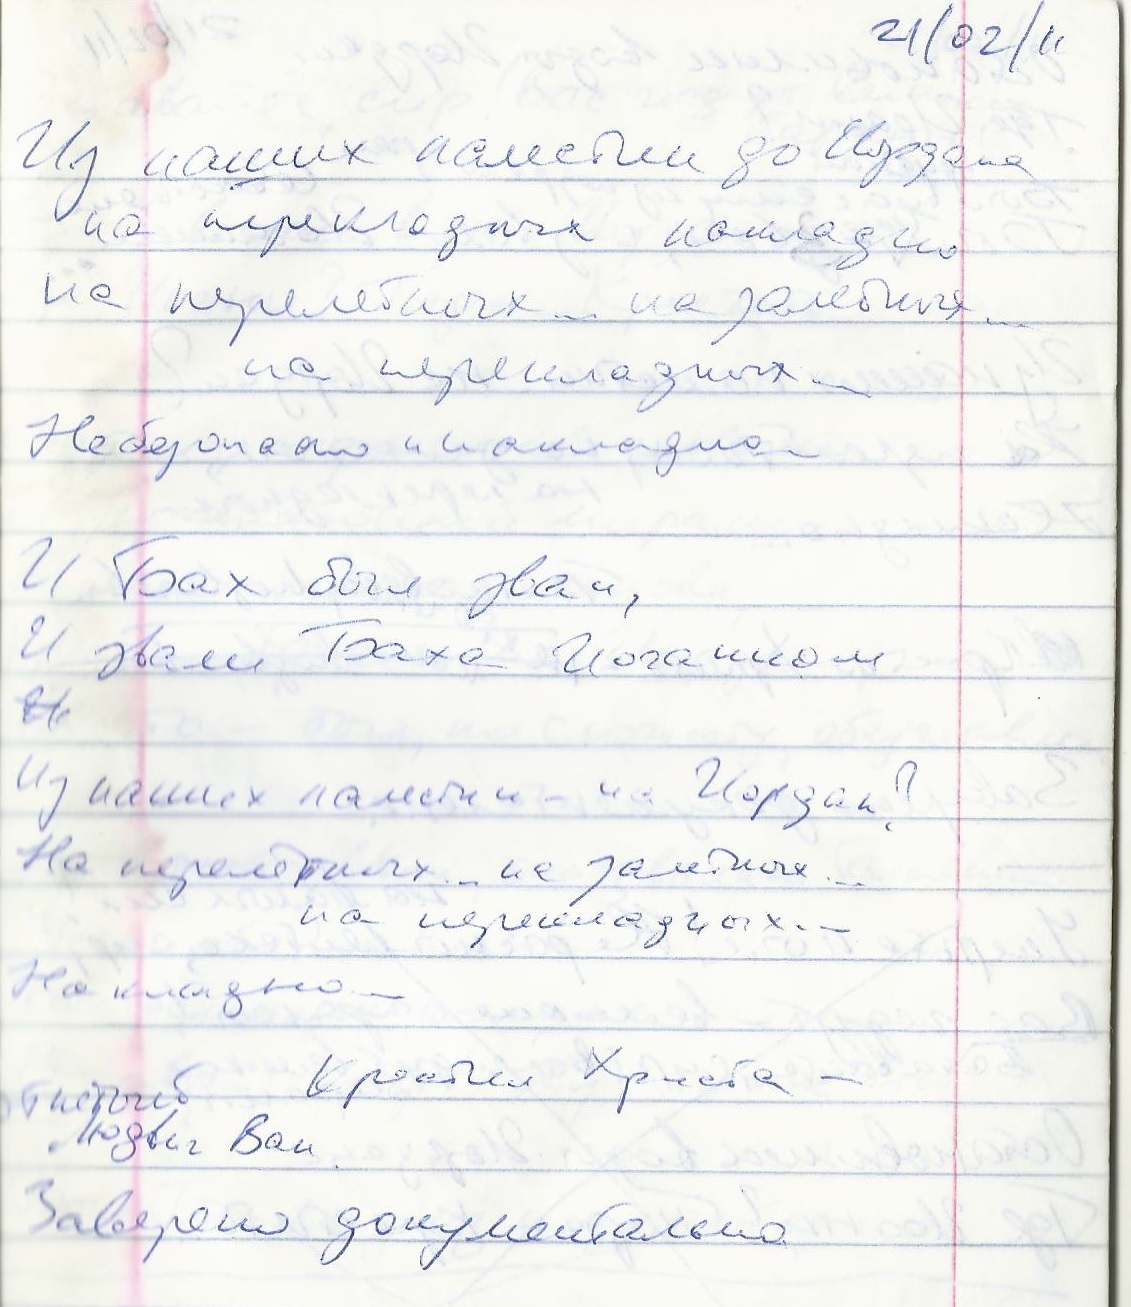 21/02/11
Из наших палестин до Иордана
на перекладных накладно
на перелётных... на залётных...
на перекладных...
Небезопасно и накладно
И Бах был зван,
И звали Баха Иоганном
И
Из наших палестин – на Иордан?
На перелётных... на залётных...
на перекладных...
Накладно...
Крестил Христа –
Людвиг Ван
Заверено документально